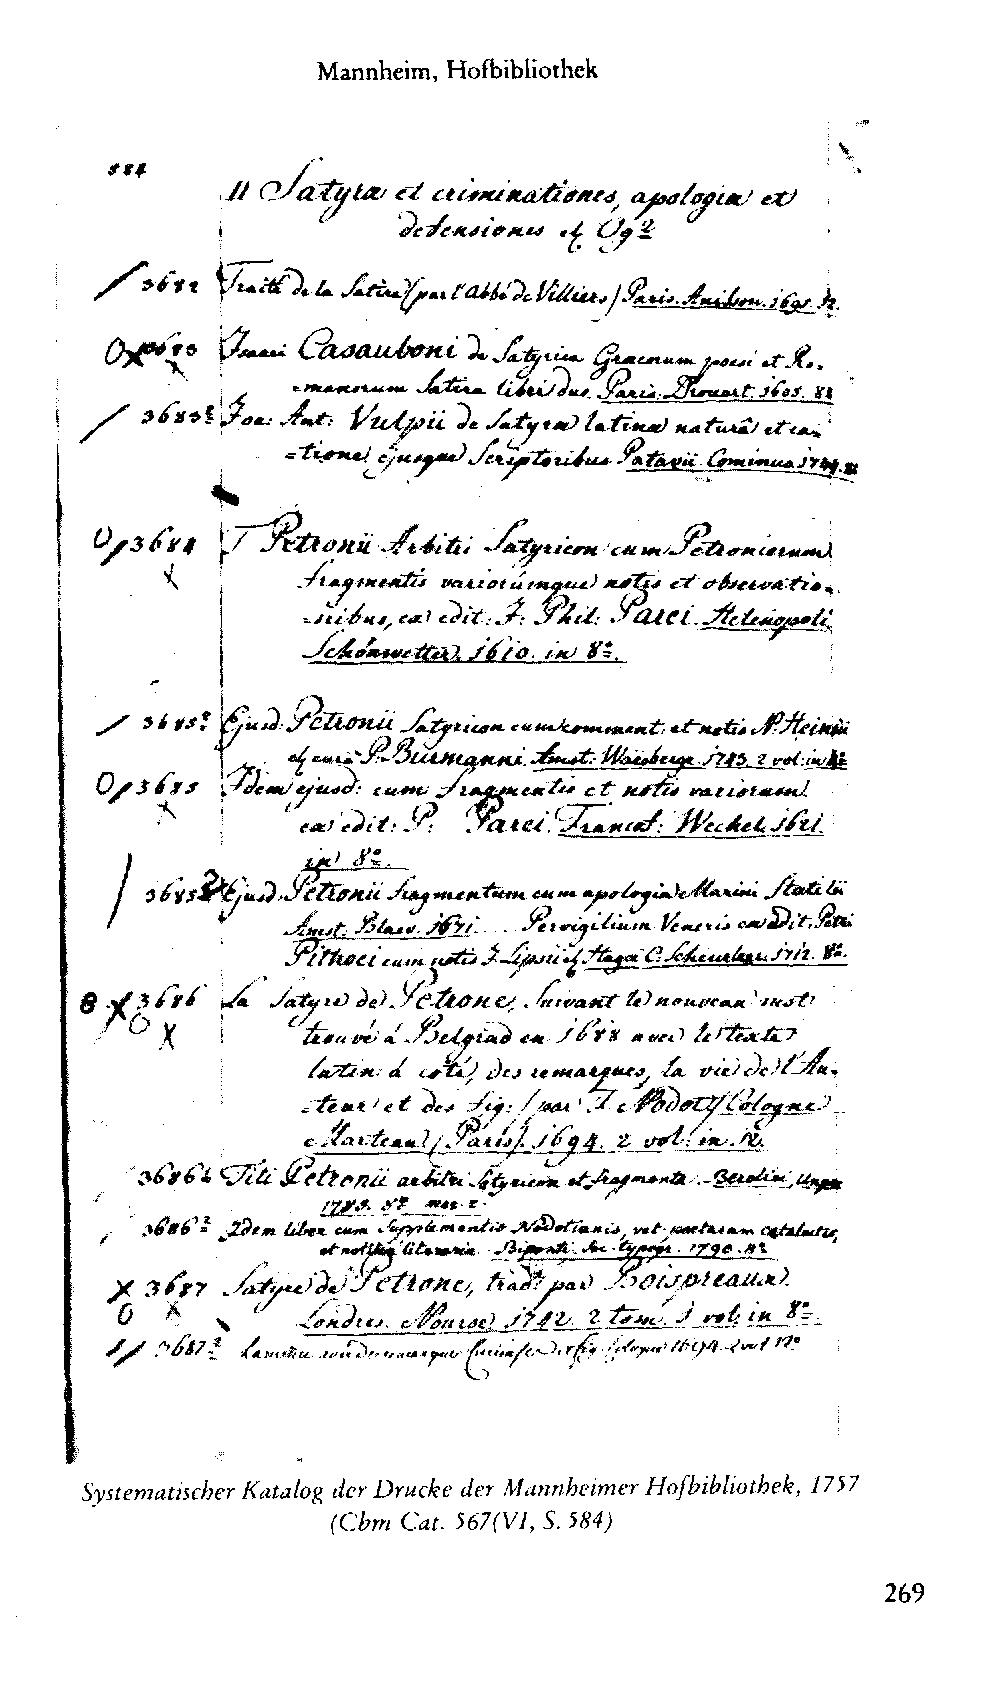 Mannheim, Hofbibliothek
584
II Satyræ et criminationes, apologiæ et
defensiones
3682 Traité de la Satire (par l'Abbé de Villiers) Paris. Anisson. 1695. 12.
3683 Isaaci Casauboni de Satyrica Græcorum poesi et Ro-
=manorum Satira libri duo. Paris. Drouart. 1605. 8º
3683² Joa: Ant: Vulpii de Satyræ latinæ naturâ et ra=
=tione, ejusque Scriptoribus Patavii Cominus 1744. 8º
Op 3684 T Petronii Arbitri Satyricon cum Petroniorum
fragmentis variorúmque notis et observatio=
=nibus, ex edit: J: Phil: Parei. Helenopoli
Schönwetter. 1610. in 8º.
3685² Ejusd: Petronii Satyricon cum comment: et notis N. Heinsii
et curâ P. Burmanni. Amst: Waesberge 1743. 2 vol: in 4º
Op 3685 Idem ejusd: cum fragmentis et notis variorum.
ex edit: P: Parei. Francof: Wechel. 1621.
in 8º.
3685 Ejusd: Petronii fragmentum cum apologia Marini Statilii
Amst. Blaeu. 1671. Pervigilium Veneris ex edit: Petri
Pithoei cum notis J. Lipsii et Hagæ C. Scheurleer. 1712. 8º.
3686 La Satyre de Petrone, suivant le nouveau mst
trouvé à Belgrad en 1688 avec le texte
latin à coté, des remarques, la vie de l'Au=
=teur et des fig: (par Nodot) Cologne
Marteau (Paris). 1694. 2 vol: in 12.
3686 b Titi Petronii arbitri Satyricon et fragmenta. Berolini, Unger
1785. 8º
3686² Idem liber cum supplementis Nodotianis, vet: poetarum catalectis,
et notitia literaria. Biponti. Soc. typogr. 1790. 8º
3687 Satyre de Petrone, trad: par Boispreaux.
Londres. Nourse. 1742. 2 tom. 1 vol: in 8º.
3687² 1694. 2 vol 12º
Systematischer Katalog der Drucke der Mannheimer Hofbibliothek, 1757
(Cbm Cat. 567(VI, S. 584)
269